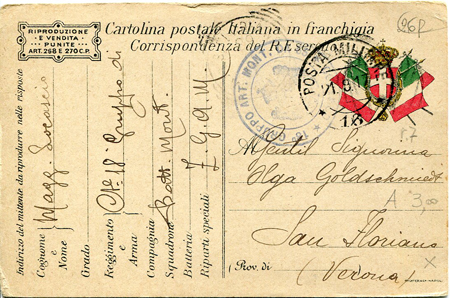 RIPRODUZIONE
E VENDITA
PUNITE
ART. 268 E 270 C.P.
Cartolina postale Italiana in franchigia
Corrispondenza del R. Esercito
26P
POSTA MILITARE
16
GRUPPO ART. MONT.
Indirizzo del mittente da riprodurre nelle risposte
Cognome e Nome Magg. Locascio
Grado
Reggimento e Arma No 18 Gruppo di
Compagnia
Squadrone Batt. Mont.
Batteria
Riparti speciali Z G A M
r7
Gentil Signorina
Olga Goldschmiedt
A 3,00
San Floriano
(Prov. di (Verona)
x